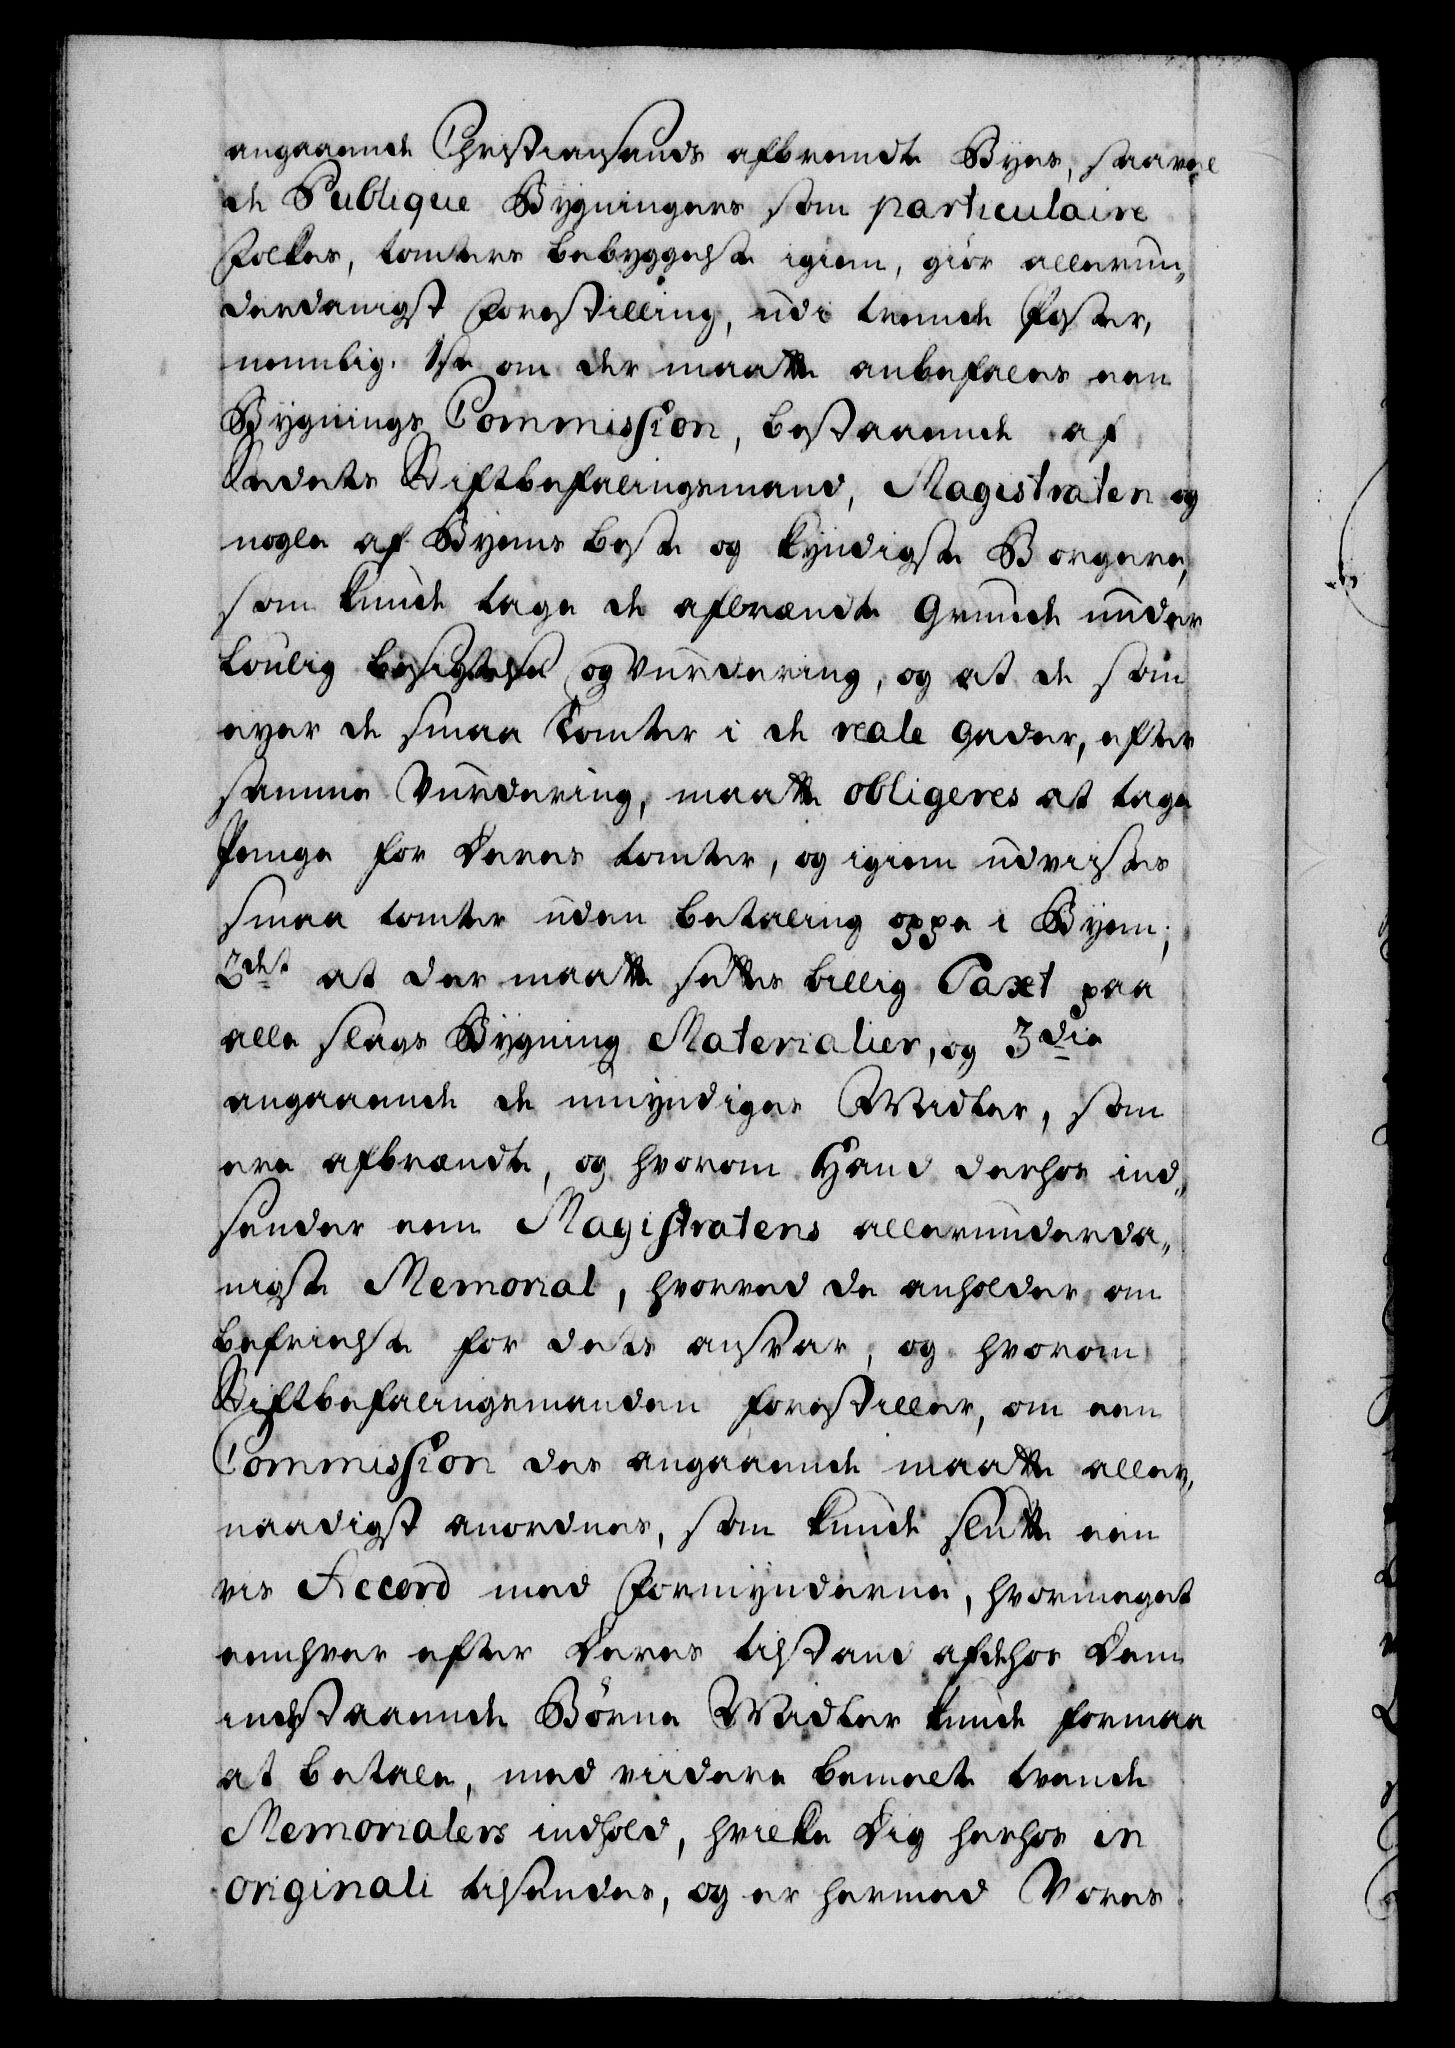 angaaende Christiansands afbrendte Byes, saavel
de Publique Bygningers som particulaire
Folkes, tomters bebyggelse igien, giør allerun„
derdanigst Forestilling, udi trende Poster,
nemblig. 1ste om der maatte anbefales een
Bygnings Commission, bestaaende af
Stedets Stiftbefalingsmand, Magistraten og
nogle af Byens beste og kyndigste Borgere,
som kunde tage de afbrændte Grunde under
loulig besigtelse og Vurdering, og at de som
eyer de smaa Tomter i de reale Gader, efter
samme Vurdering, maatte obligeres at tage
Penge for Deres tomter, og igien udvistes
smaa tomter uden betaling oppe i Byen;
2det at der maatte settes billig Taxt paa
alle slags Bygning Materialier, og 3die
angaaende de umyndiges Midler, som
ere afbrændte, og hvorom Hand derhos ind„
sender een Magistratens allerunderda„
nigste Memorial, hvorved de anholder om
befrielse for dets ansvar, og hvorom
Stiftbefalingsmanden forestiller, om een
Commission des angaaende maatte aller„
naadigst anordnes, som kunde slutte een
vis Accord med Formynderne, hvormeget
eenhver efter Deres tilstand af de hos Dem
indstaaende Børne Midler kunde formaa
at betale, med viidere bemelte trende
Memorialers indhold, hvilke Dig herhos in
originali tilsendes, og er hermed Vores